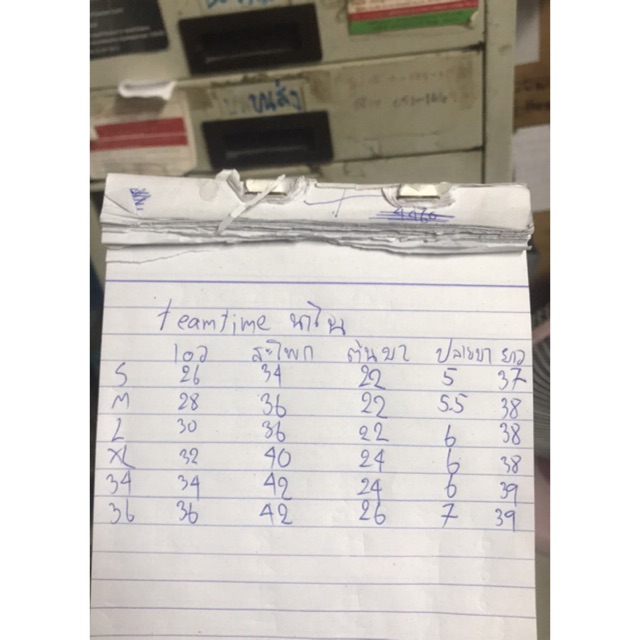 ขนส่ง
4460
teamtime นาโน
เอว สะโพก ต้นขา ปลายขา ยาว
S 26 34 22 5 37
M 28 36 22 5.5 38
L 30 36 22 6 38
XL 32 40 24 6 38
34 34 42 24 6 39
36 36 42 26 7 39